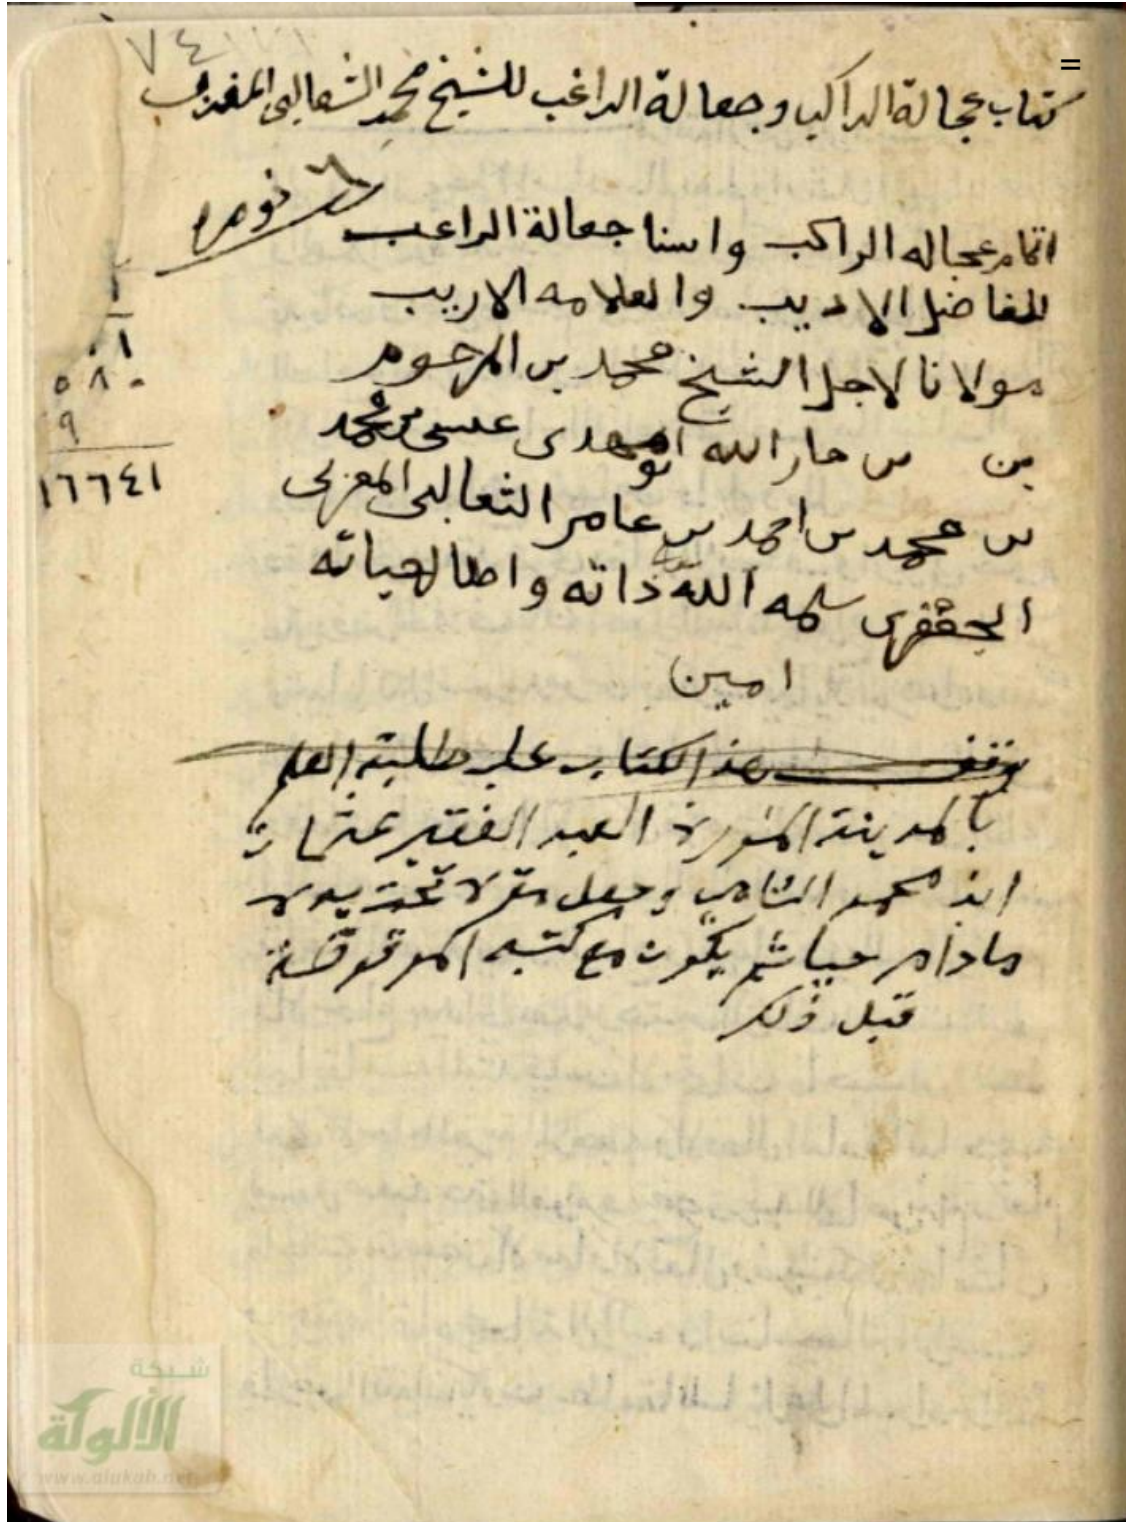 ٧٤
كتاب عجالة الراكب وجعالة الراغب للشيخ محمد الثعالبى المغربى
٦ نومرو
اتمام عجاله الراكب واسنا جعالة الراعب
للفاضل الاديب والعلامه الاريب
مولانا لاجل الشيخ محمد بن المرحوم
بن جار الله عيسى بن محمد
بن محمد بن احمد بن عامر الثعالبى المغربى
الجعفرى سلمه الله ذاته واطال حياته
امين
وقف هذا الكتاب على طلبة العلم
بالمدينة المنورة العبد الفقير عثمان
ابن محمد الشامى وجعل مقره تحت يده
مادام حيا ثم يكون مع كتبه الموقوفة
قبل ذلك
٢
١
٥٨٠
٩
١٦٦٤١
شبكة
الألوكة
www.alukah.net